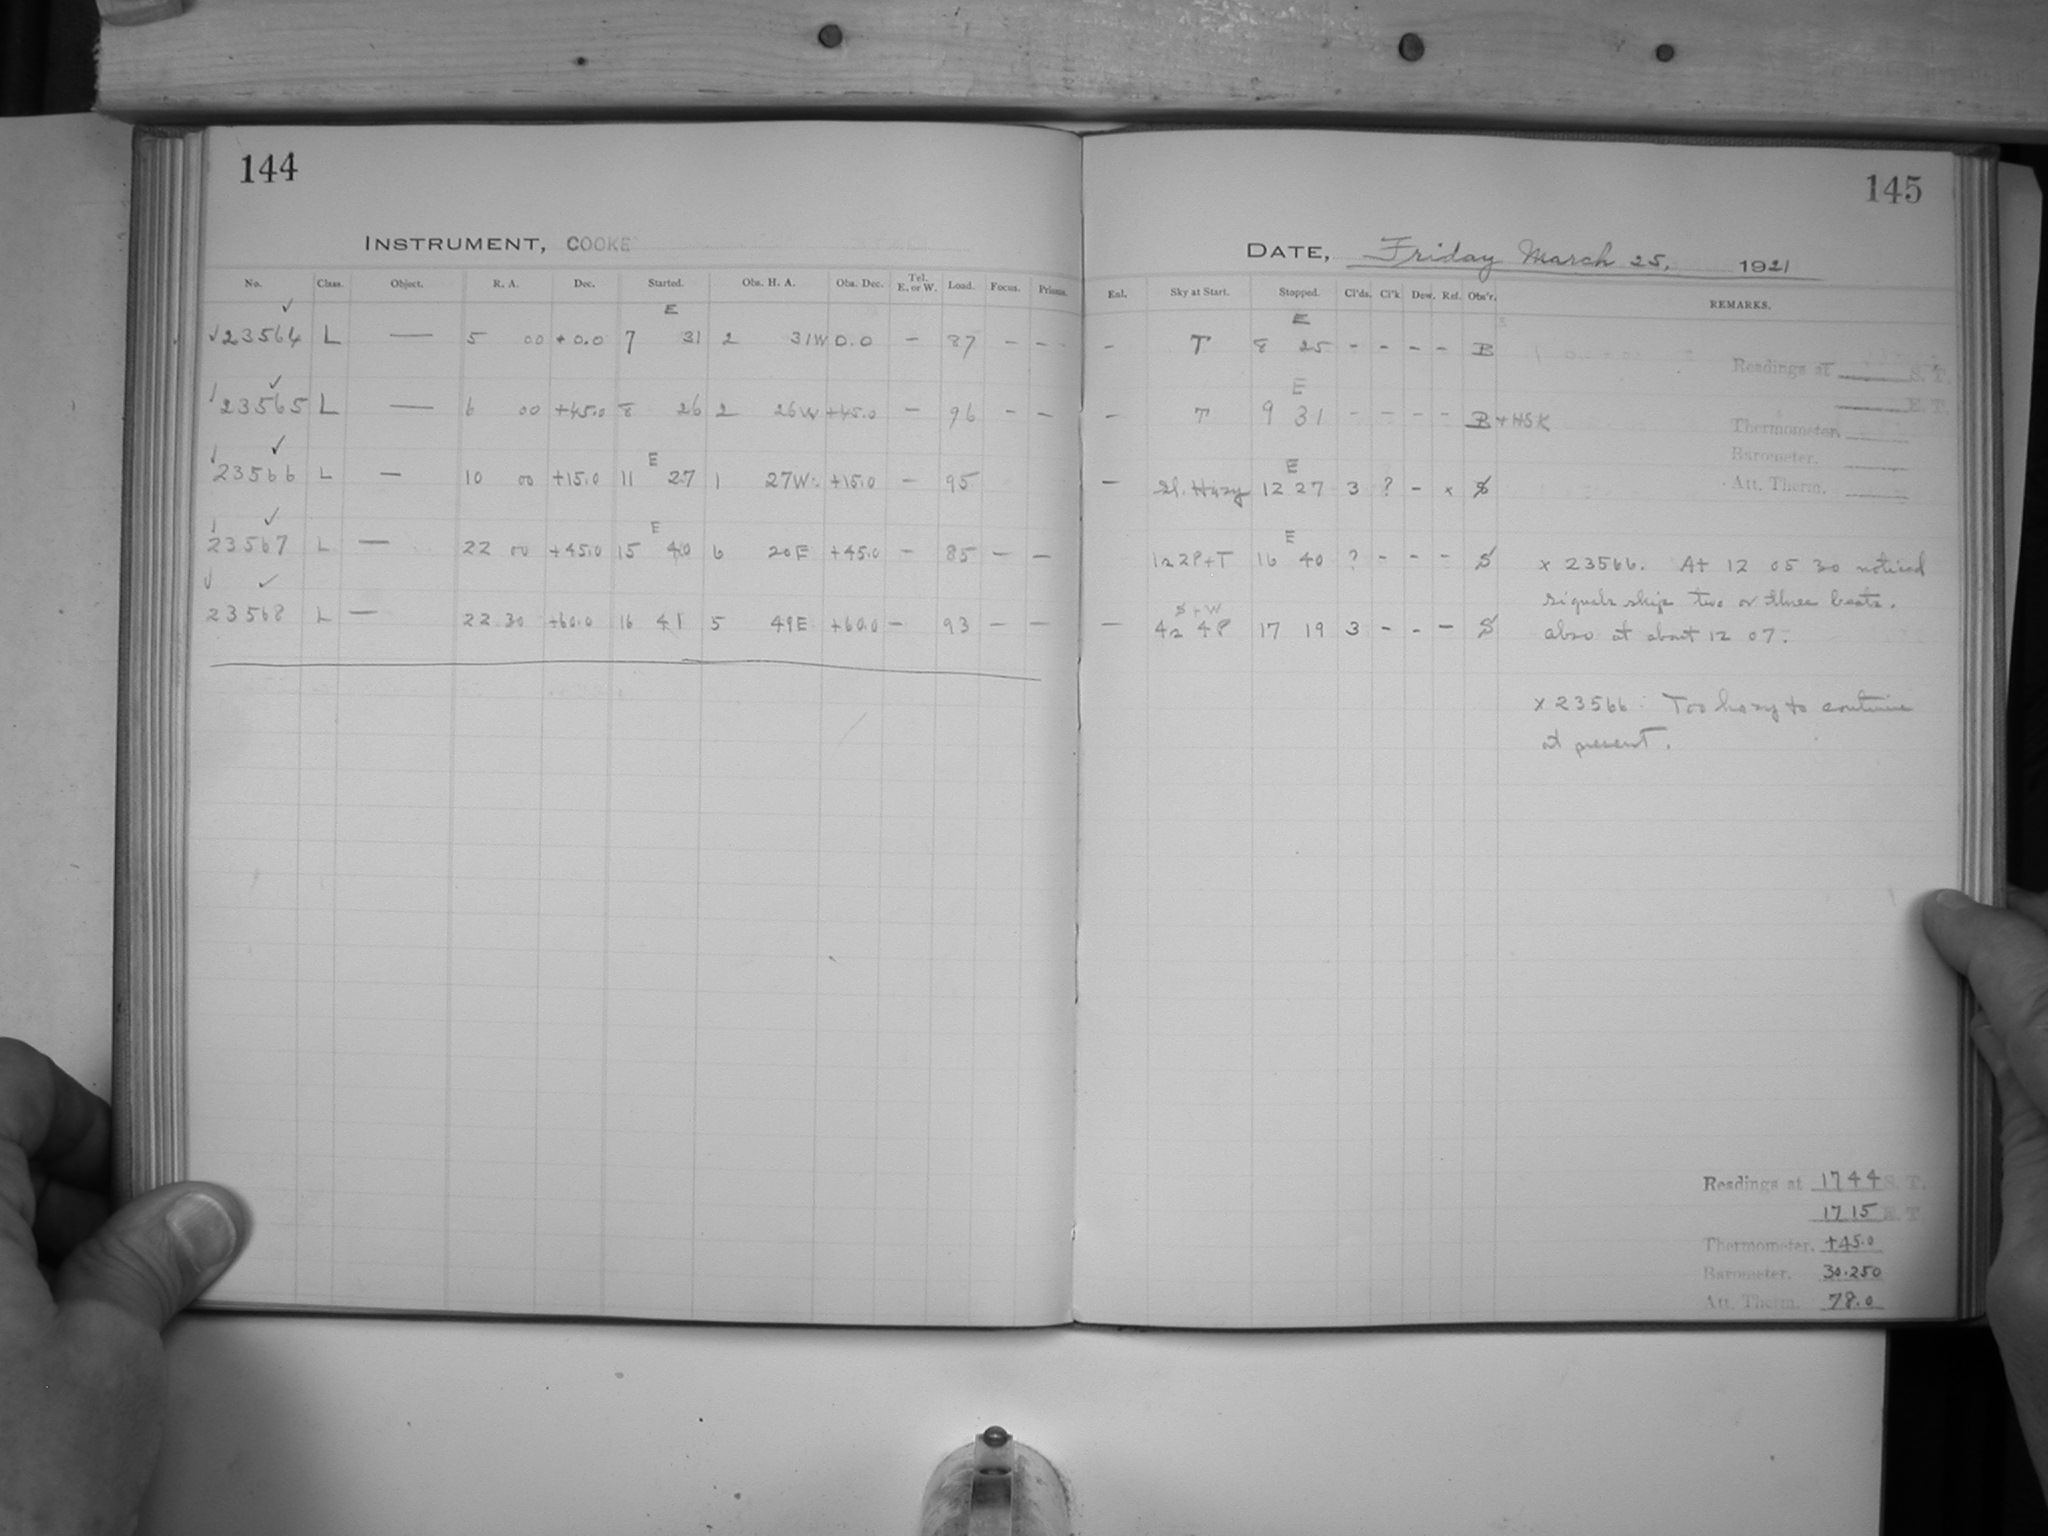 144
INSTRUMENT, COOKE
No. Class. Object. R. A. Dec. Started. Obs. H. A. Obs. Dec. Tel. E. or W. Load. Focus. Prisms.
E
✓ 23564 ✓ L — 5 00 +0.0 7 31 2 31W 0.0 – 87 – –
✓ 23565 ✓ L — 6 00 +45.0 8 26 2 26W +45.0 – 96 – –
E
✓ 23566 ✓ L — 10 00 +15.0 11 27 1 27W +15.0 – 95
E
✓ 23567 ✓ L — 22 00 +45.0 15 40 6 20E +45.0 – 85 – –
✓ 23568 ✓ L — 22 30 +60.0 16 41 5 49E +60.0 – 93 – –
145
DATE, Friday March 25, 1921
Enl. Sky at Start. Stopped. Cl'ds. Cl'k Dew. Ref. Obs'r. REMARKS.
E
– T 8 25 – – – – B
E
– T 9 31 – – – – B + HSK
E
– Sl. Hazy 12 27 3 ? – x S
E
1a 2P+T 16 40 ? – – – S
S+W
– 4a 4P 17 19 3 – – – S
Readings at S. T.
E. T.
Thermometer.
Barometer.
Att. Therm.
x 23566. At 12 05 30 noticed
signals skip two or three beats.
also at about 12 07.
x 23566 Too hazy to continue
at present.
Readings at 1744 S. T.
1715 E. T.
Thermometer. +45.0
Barometer. 30.250
Att. Therm. 78.0